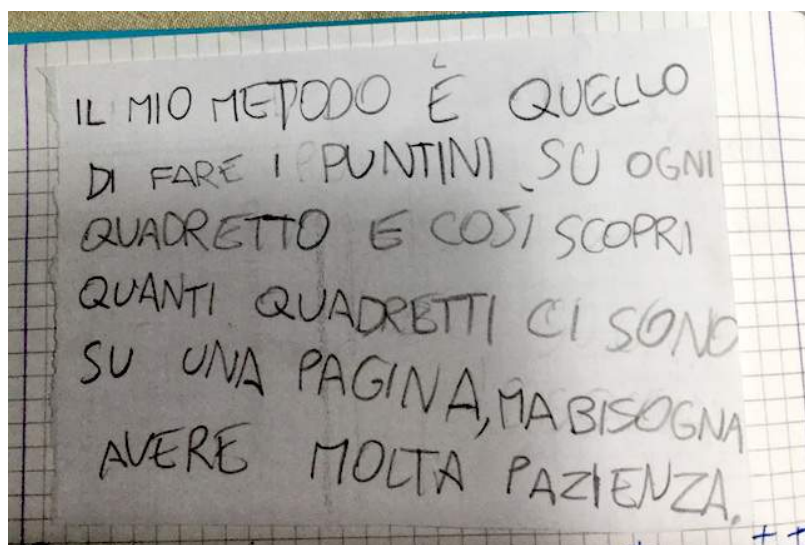 IL MIO METODO È QUELLO
DI FARE I PUNTINI SU OGNI
QUADRETTO E COSÌ SCOPRI
QUANTI QUADRETTI CI SONO
SU UNA PAGINA, MA BISOGNA
AVERE MOLTA PAZIENZA.